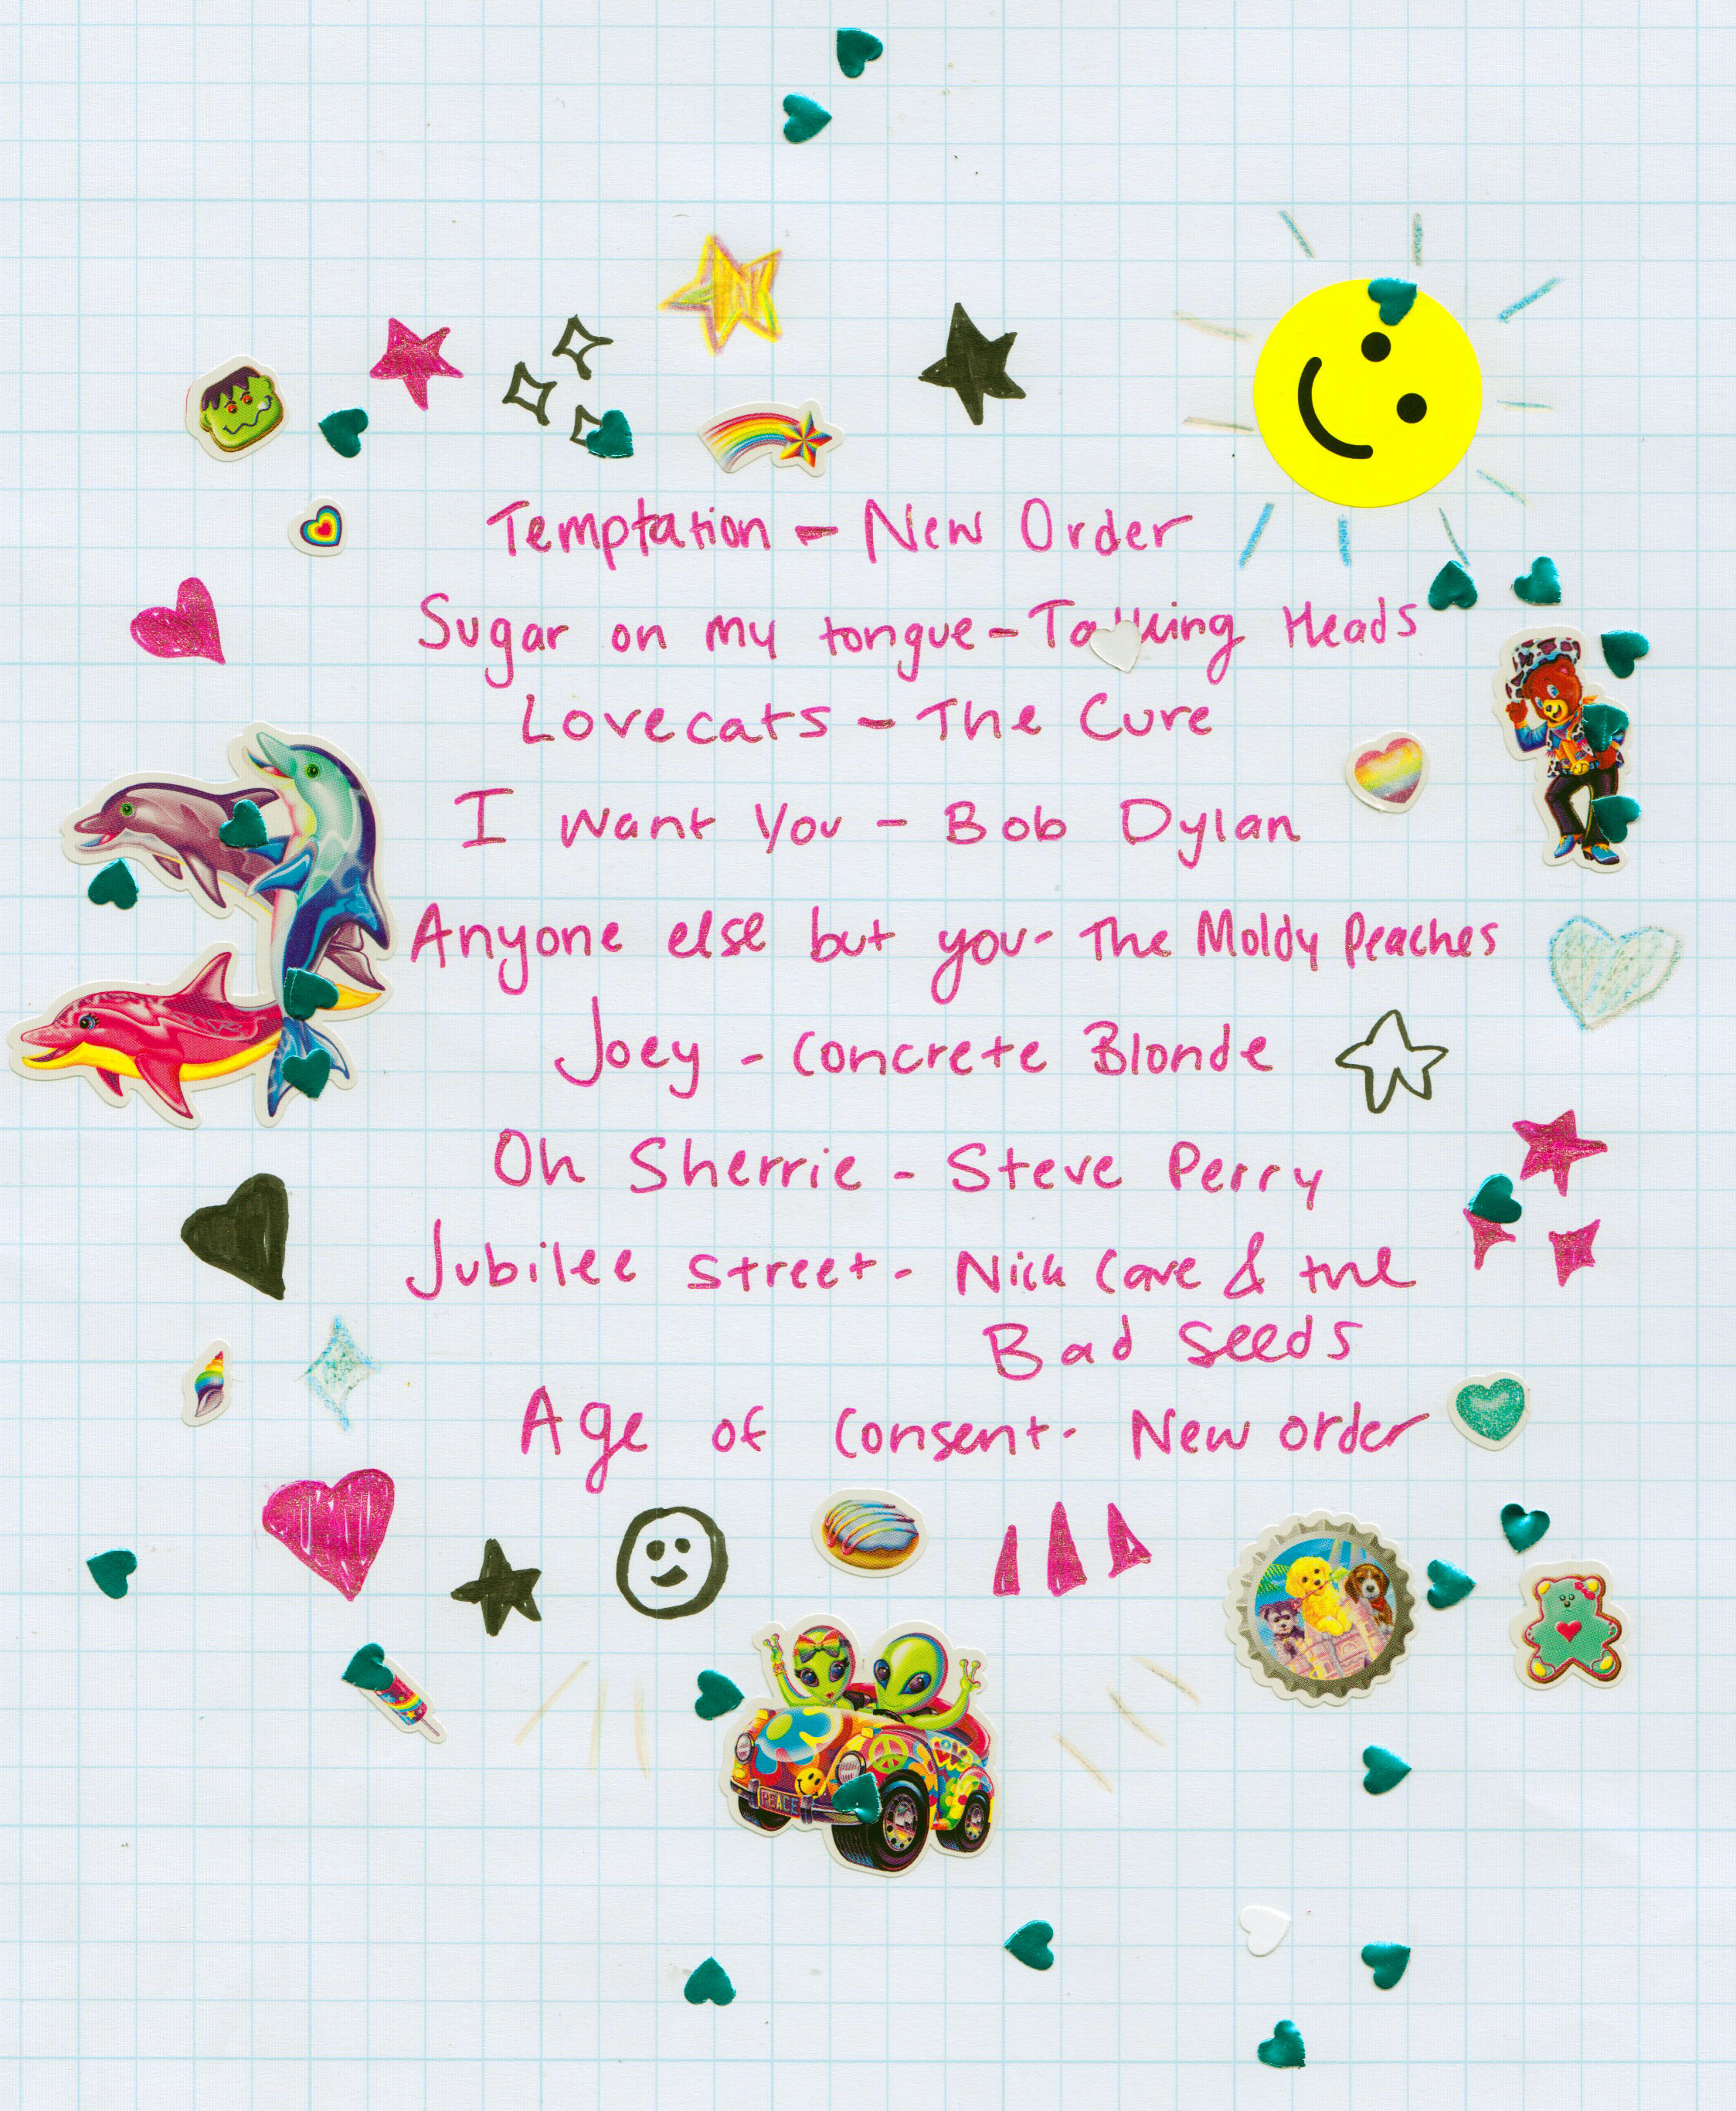 Temptation - New Order
Sugar on my tongue - Talking Heads
Lovecats - The Cure
I want You - Bob Dylan
Anyone else but you - The Moldy Peaches
Joey - Concrete Blonde
Oh Sherrie - Steve Perry
Jubilee street - Nick Cave & the
Bad Seeds
Age of Consent - New order
PEACE